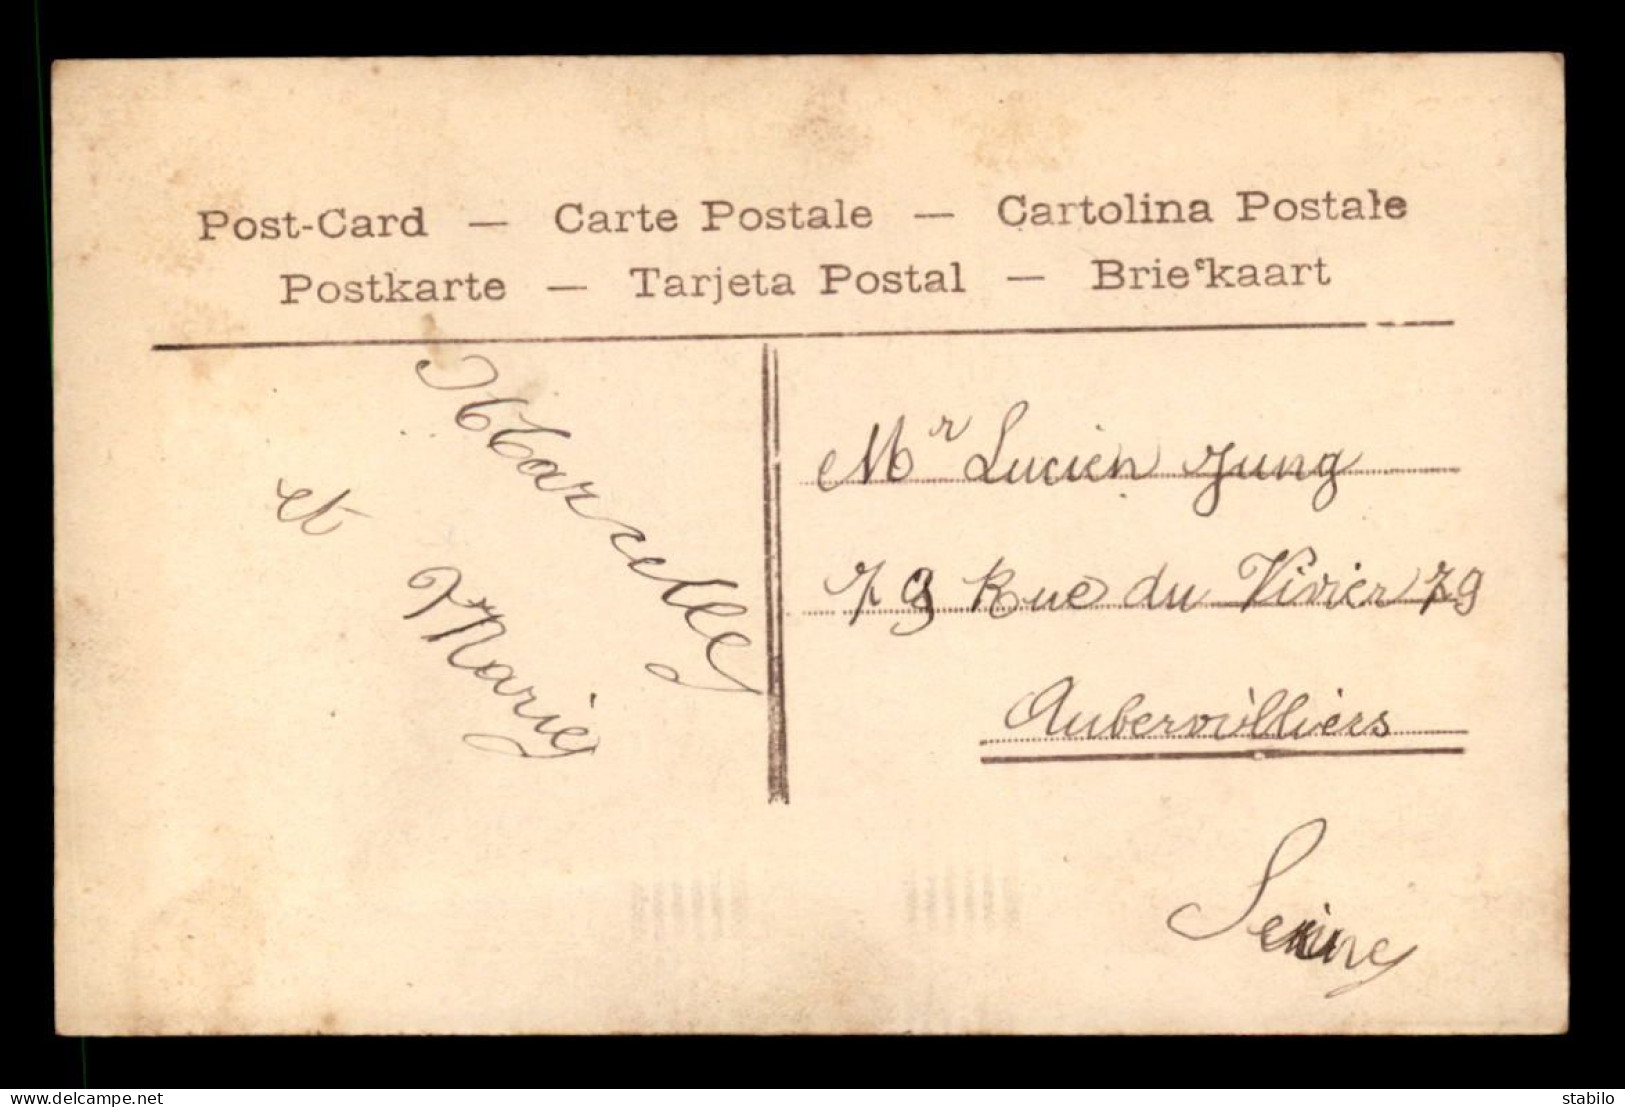 Post-Card — Carte Postale — Cartolina Postale
Postkarte — Tarjeta Postal — Briefkaart
Marcelle
et
Marie
Mr Lucien Jung
79 Rue du Vivier 79
Aubervilliers
Seine
www.delcampe.net
stabilo